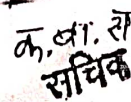 क. बा. से
सचिव